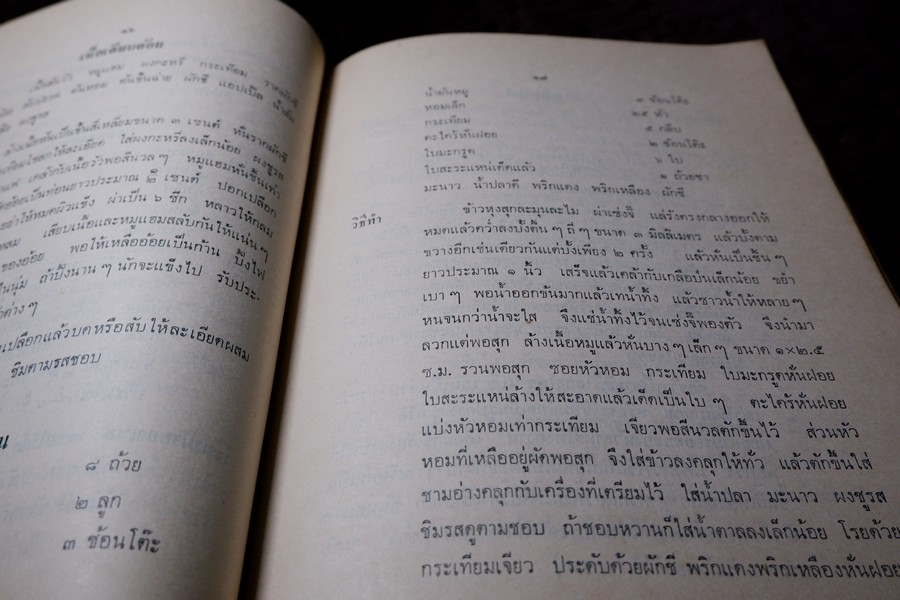 เนื้อเสียบอ้อย
หมูแฮม ผงกะหรี่ กระเทียม รากผักชี
ต้นหอม ผักชี แอปเปิ้ล น้ำส้ม
ล้างเนื้อหั่นเป็นชิ้นสี่เหลี่ยมขนาด ๓ เซนต์ หั่นรากผักชี
โขลกให้ละเอียด ใส่ผงกะหรี่ลงเล็กน้อย ผงชูรส
เคล้ากับเนื้อรวัพอสีนวลๆ หมูแฮมหั่นชิ้นเท่า
อ้อยเป็นท่อนยาวประมาณ ๒ เซนต์ ปอกเปลือก
อย่าให้หมดผิวแข็ง ผ่าเป็น ๖ ซีก หลาวให้กลม
เสียบเนื้อและหมูแฮมสลับกันให้แน่นๆ
ของอ้อย พอให้เหลืออ้อยเป็นก้าน ปิ้งไฟ
นุ่ม ถ้าปิ้งนานๆ นักจะแข็งไป รับประ-
ต่างๆ
เปลือกแล้วบดหรือสับให้ละเอียดผสม
ชิมตามรสชอบ
๘ ถ้วย
๒ ลูก
๓ ช้อนโต๊ะ
๑๘
น้ำมันหมู ๔ ช้อนโต๊ะ
หอมเล็ก ๒๕ หัว
กระเทียม ๕ กลีบ
ตะไคร้หั่นฝอย ๒ ช้อนโต๊ะ
ใบมะกรูด ๖ ใบ
ใบสะระแหน่เด็ดแล้ว ๑ ถ้วยชา
มะนาว น้ำปลาดี พริกแดง พริกเหลือง ผักชี
วิธีทำ ข้าวหุงสุกละมุนละไม ผ่าเซ่งจี๊ แล่รังตรงกลางออกให้
หมดแล้วคว่ำลงบั้งตื้นๆ ถี่ๆ ขนาด ๓ มิลลิเมตร แล้วบั้งตาม
ขวางอีกเช่นเดียวกันแต่บั้งเพียง ๒ ครั้ง แล้วหั่นเป็นชิ้นๆ
ยาวประมาณ ๑ นิ้ว เสร็จแล้วเคล้ากับเกลือป่นเล็กน้อย ขยำ
เบาๆ พอน้ำออกข้นมากแล้วเทน้ำทิ้ง แล้วซาวน้ำให้หลายๆ
หนจนกว่าน้ำจะใส จึงแช่น้ำทิ้งไว้จนเซ่งจี๊พองตัว จึงนำมา
ลวกแต่พอสุก ล้างเนื้อหมูแล้วหั่นบางๆ เล็กๆ ขนาด ๑×๒.๕
ซ.ม. รวนพอสุก ซอยหัวหอม กระเทียม ใบมะกรูดหั่นฝอย
ใบสะระแหน่ล้างให้สะอาดแล้วเด็ดเป็นใบๆ ตะไคร้หั่นฝอย
แบ่งหัวหอมเท่ากระเทียม เจียวพอสีนวลตักขึ้นไว้ ส่วนหัว
หอมที่เหลืออยู่ผัดพอสุก จึงใส่ข้าวลงคลุกให้ทั่ว แล้วตักขึ้นใส่
ชามอ่างคลุกกับเครื่องที่เตรียมไว้ ใส่น้ำปลา มะนาว ผงชูรส
ชิมรสดูตามชอบ ถ้าชอบหวานก็ใส่น้ำตาลลงเล็กน้อย โรยด้วย
กระเทียมเจียว ประดับด้วยผักชี พริกแดงพริกเหลืองหั่นฝอย